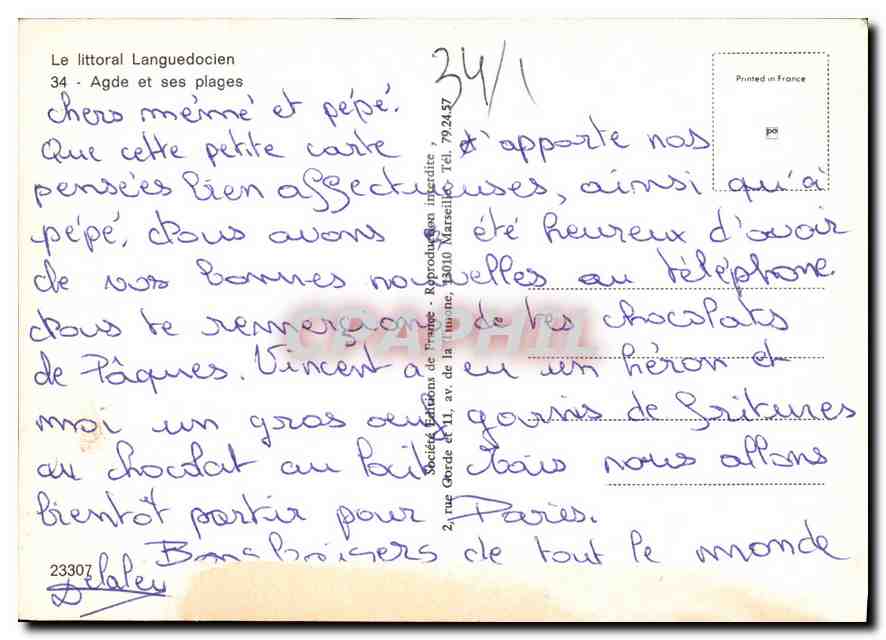 Le littoral Languedocien
34 - Agde et ses plages
34/1
Printed in France
chers mémé et pépé.
Que cette petite carte t'apporte nos
pensées bien affectueuses, ainsi qu'à
pépé. Nous avons été heureux d'avoir
de vos bonnes nouvelles au téléphone.
Nous te remerçions de tes chocolats
de Pâques. Vincent a eu un héron et
moi un gros oeuf garnis de fritures
au chocolat au lait. Mais nous allons
bientôt partir pour Paris.
Bons baisers de tout le monde
23307
Société Editions de France - Reproduction interdite,
2, rue Gorde et 11, av. de la Timone, 13010 Marseille. Tél. 79.24.57
CPAPHIL